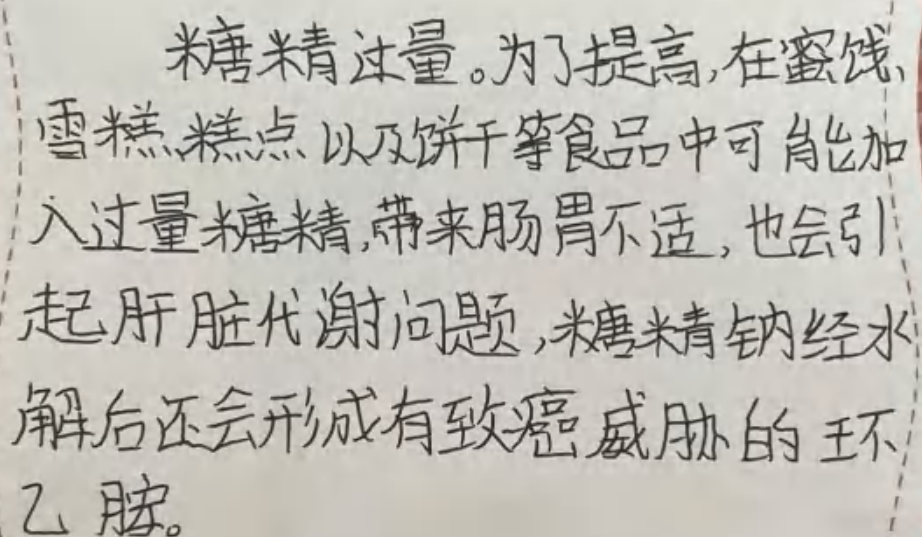 糖精过量。为了提高,在蜜饯、
雪糕、糕点以及饼干等食品中可能加
入过量糖精,带来肠胃不适,也会引
起肝脏代谢问题,糖精钠经水
解后还会形成有致癌威胁的环
乙胺。